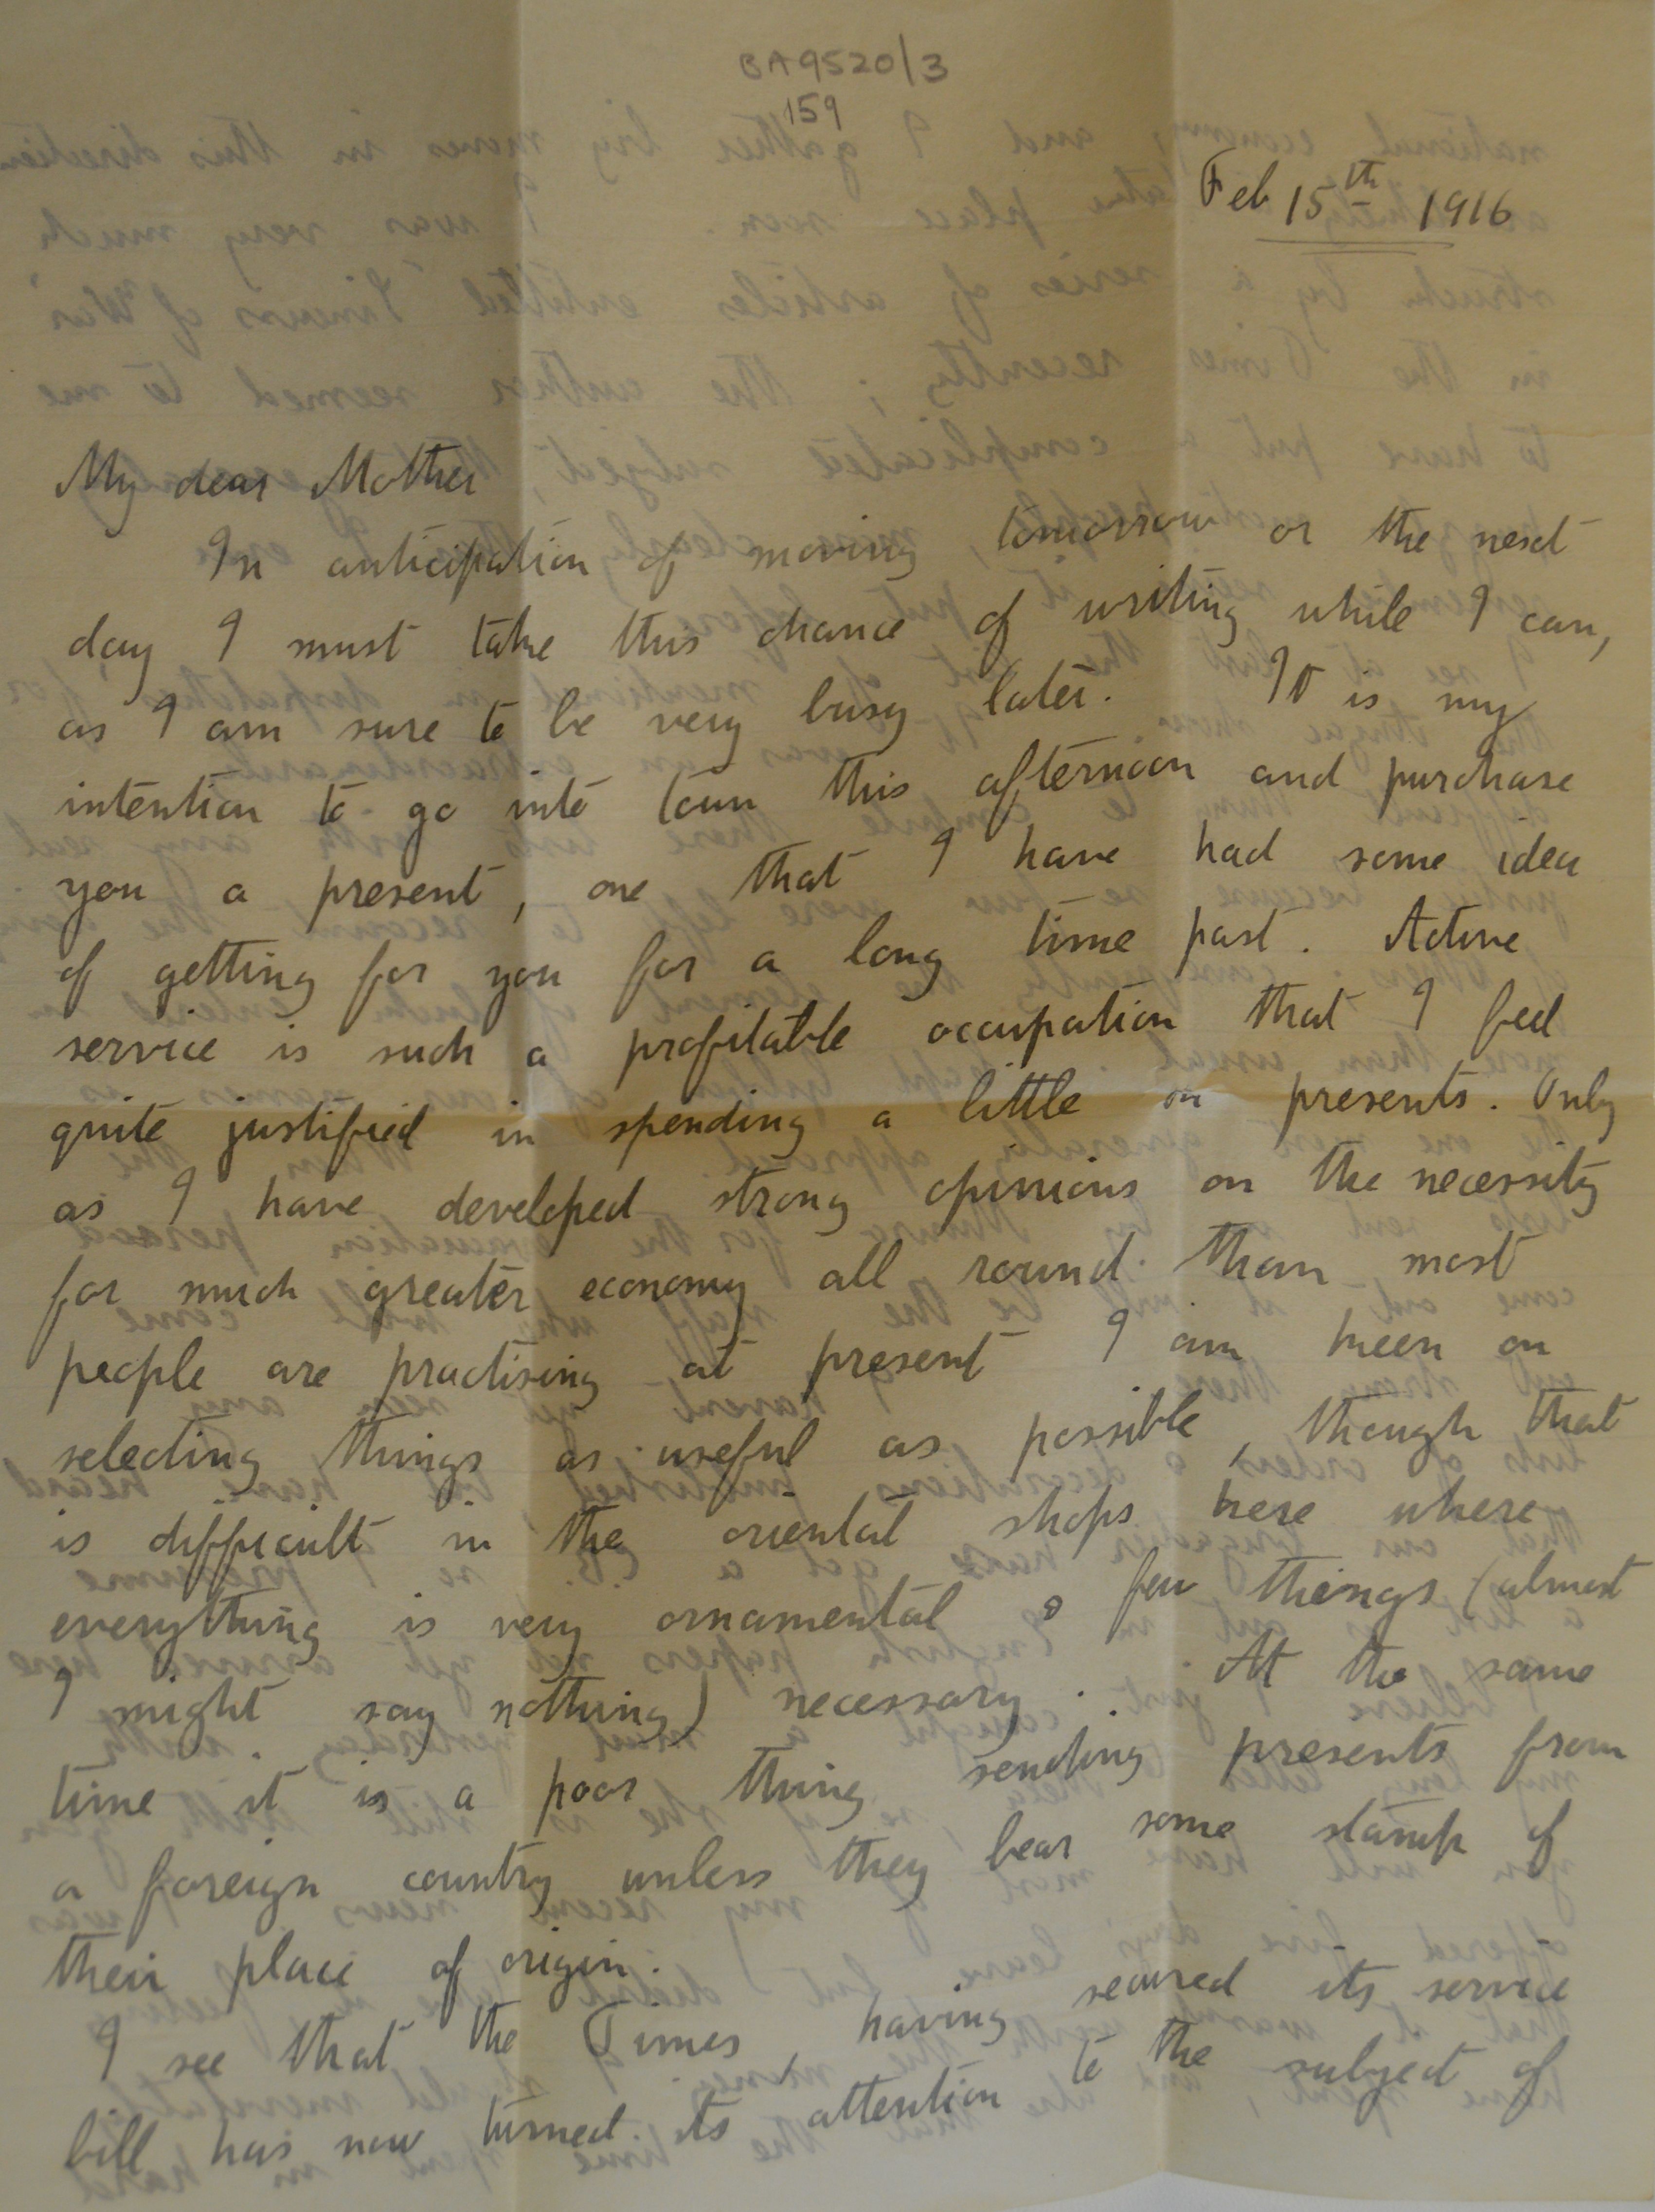 BA9520/3
159
Feb 15th 1916
My dear Mother
In anticipation of moving tomorrow or the next
day I must take this chance of writing while I can,
as I am sure to be very busy later. It is my
intention to go into town this afternoon and purchase
you a present, one that I have had some idea
of getting for you for a long time past. Active
service is such a profitable occupation that I feel
quite justified in spending a little on presents. Only
as I have developed strong opinions on the necessity
for much greater economy all round than most
people are practising at present I am keen on
selecting things as useful as possible, though that
is difficult in the oriental shops here where
everything is very ornamental & few things (almost
I might say nothing) necessary. At the same
time it is a poor thing sending presents from
a foreign country unless they bear some stamp of
their place of origin.
I see that the Times, having secured its service
bill has now turned its attention to the subject of